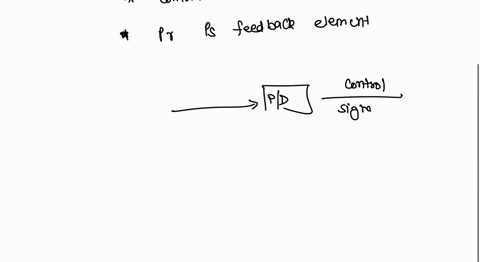 * Pr Ps feedback element
P/D
control
signa